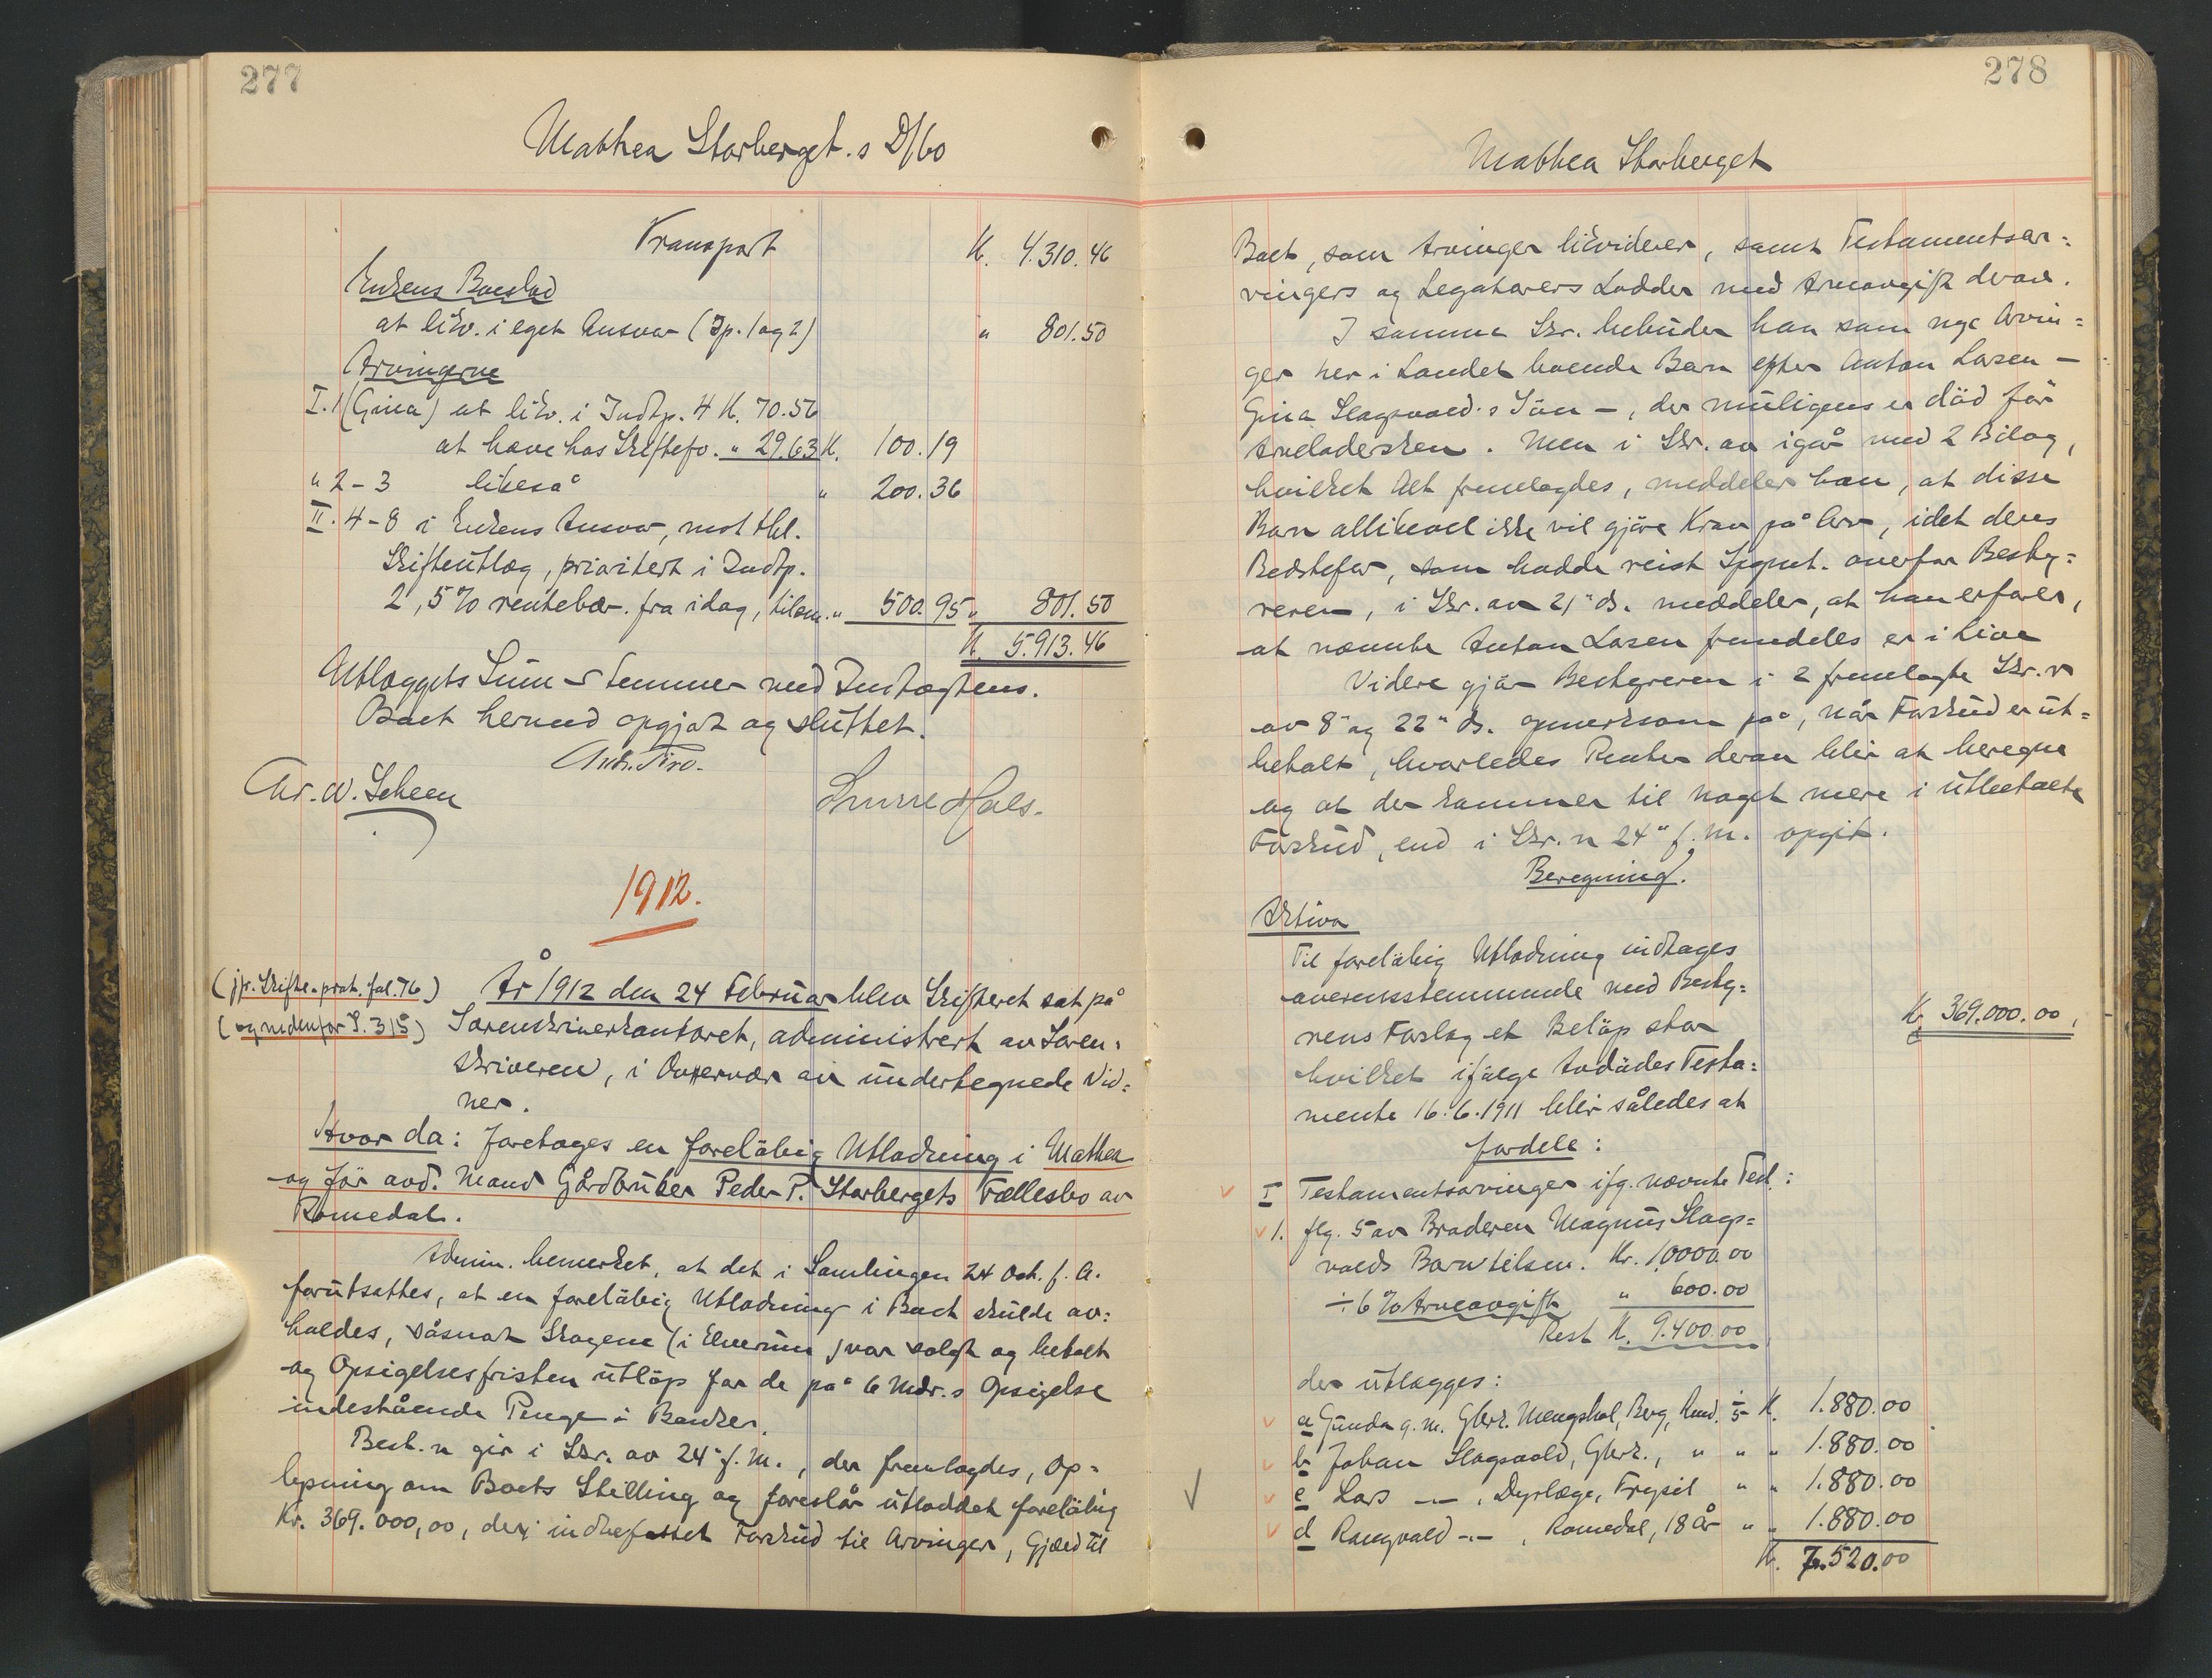 277
Mathea Storberget.s D/bo
Transport K. 4.310.46
Enkens Boeslod
at likv. i eget Ansvar (Ip. 1 og 2) " 801.50
Arvingerne
I.1 (Gina) at likv. i Indtp. 4 K. 70.56
at hæve hos Skiftefo. " 29.63 K. 100.19
" 2-3 likeså " 200.36
II. 4-8 i Enkens Ansvar, mot thl.
Skifteutlæg, prioritert i Indtp.
2, 5% rentebær. fra idag, tilsm. " 500.95 " 801.50
K. 5.913.46
Utlæggets Sum stemmer med Indtægtens.
Boet hermed opgjort og sluttet.
Chr. W. Scheen
1912.
(jfr. Skifte-prot. fol. 76)
(og nedenfor S. 315)
År 1912 den 24 Februar blev Skifteret sat på
Sorenskriverkontoret, administrert av Soren-
skriveren, i Overvær av undertegnede Vid-
ner.
Hvor da: foretoges en foreløbig Utlodning i Mathea
og før avd. Mand Gårdbruker Peder P. Storbergets Fællesbo av
Romedal.
Admin. bemerket, at det i Samlingen 24 Oct. f. A.
forutsattes, at en foreløbig Utlodning i Boet skulde av-
holdes, såsnart Skogene (i Elverum) var solgt og betalt
og Opsigelsesfristen utløp for de på 6 Mdr.s Opsigelse
indestående Penge i Banker.
Best.n gir i Skr. av 24" f. M., der fremlagdes, Op-
lysning om Boets Stilling og foreslår utloddet foreløbig
Kr. 369.000,00, deri indbefattet Forskud til Arvinger, Gjæld til
278
Mathea Storberget
Boet, som Arvinger likviderer, samt Testamentsar-
vingers og Legatarers Lodder med Arveavgift derav.
I samme Skr. bebuder han som nye Arvin-
ger her i Landet boende Barn efter Anton Larsen -
Gina Slagsvold.s Søn -, der muligens er død før
Arveladersken. Men i Skr. av igår med 2 Bilag,
hvilket Alt fremlagdes, meddeler han, at disse
Barn allikevel ikke vil gjøre Krav på Arv, idet deres
Bedstefar, som hadde reist Spgsm. overfor Besty-
reren, i Skr. av 21" ds. meddeler, at han erfarer,
at nævnte Anton Larsen fremdeles er i Live
Videre gjør Bestyreren i 2 fremlagte Skr.r
av 8" og 22" ds. opmerksom på, når Forskud er ut-
betalt, hvorledes Renter derav blir at beregne
og at der kommer til noget mere i utbetalte
Forskud, end i Skr. n 24" f. M. opgit.
Beregning.
Aktiva
Til foreløbig Utlodning indtages
overensstemmende med Besty-
rens Forslag et Beløp stor K. 369.000.00,
hvilket ifølge Avdødes Testa-
mente 16.6.1911 blir således at
fordele:
I Testamentsarvinger ifg. nævnte Test.:
1. flg. 5 av Broderen Magnus Slags-
volds Barn tilsm. Kr. 10000.00
÷ 6% Arveavgift " 600.00
Rest K. 9.400.00
der utlægges:
a Gunda g. m. Gbrk. Mengshol, Berg, Rmd. 1/5 K. 1.880.00
b Johan Slagsvold, Gbrk., " " " 1.880.00
c Lars -"-, Dyrlæge, Trysil " " 1.880.00
d Rangvald -"-, Romedal, 18 år " " 1.880.00
K. 7.520.00